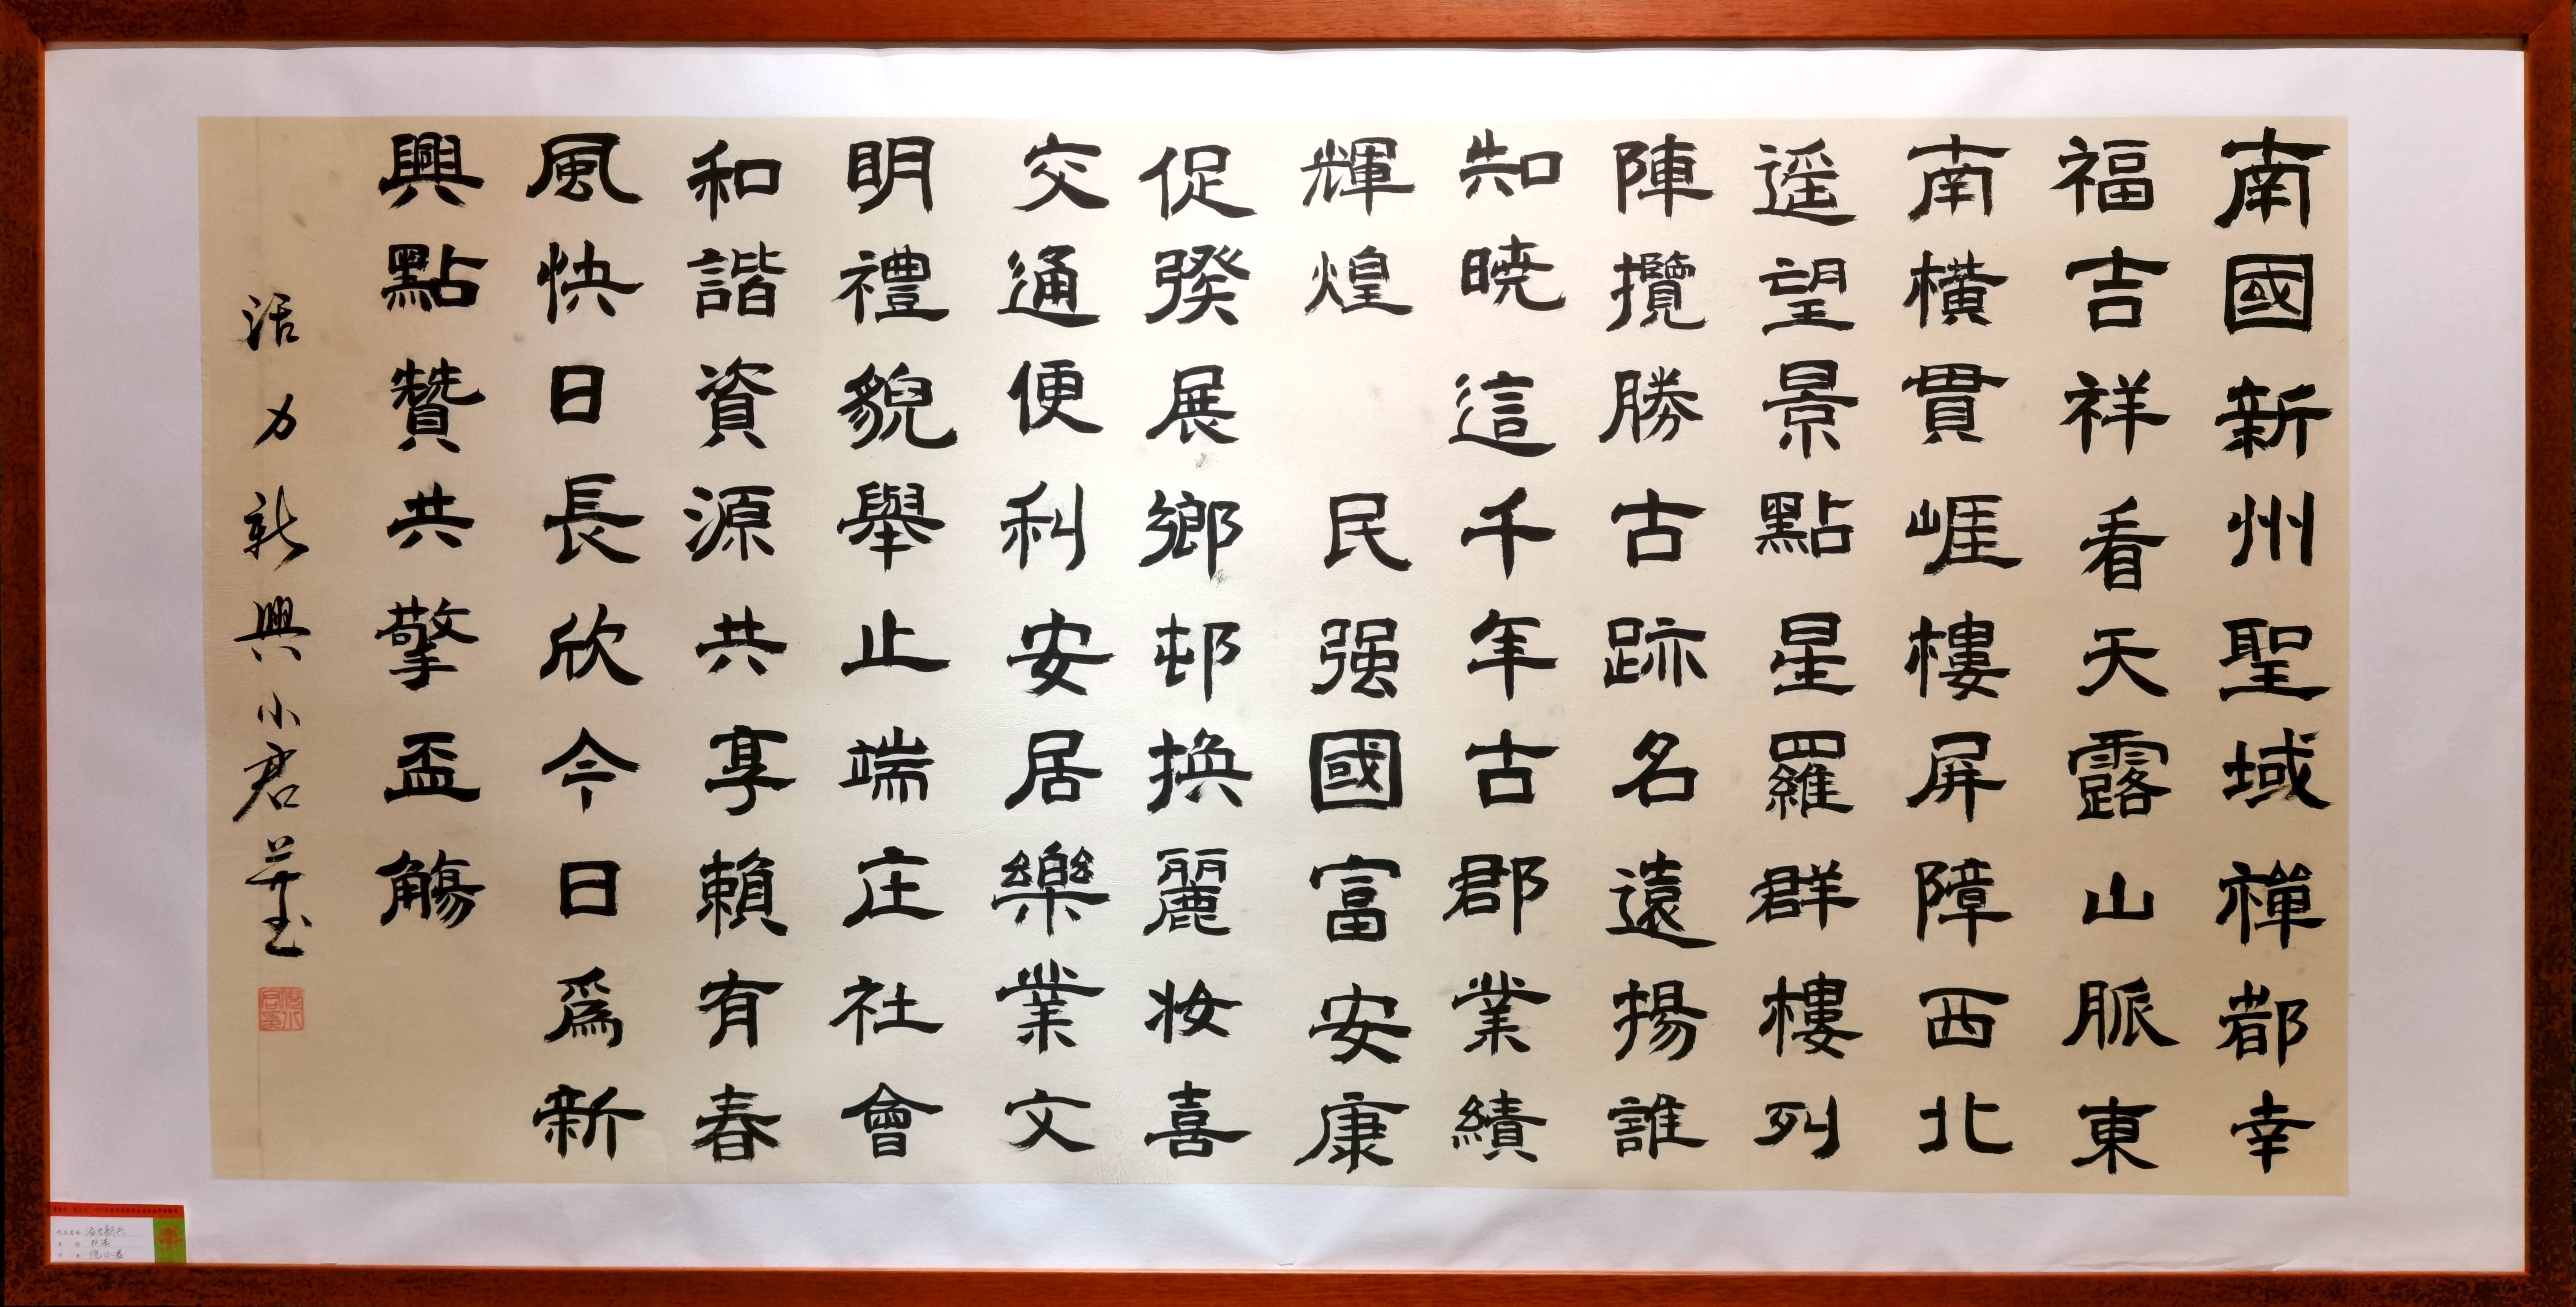 南國新州聖域禪都幸
福吉祥看天露山脈東
南橫貫崕樓屏障西北
遥望景點星羅群樓列
陣攬勝古跡名遠揚誰
知曉這千年古郡業績
輝煌 民强國富安康
促發展鄉邨换麗妆喜
交通便利安居樂業文
明禮貌舉止端庄社會
和諧資源共享賴有春
風快日長欣今日爲新
興點贊共擎盃觴
活力新興小君并书
作品名称 活力新兴
类别 书法
作者 倪小君